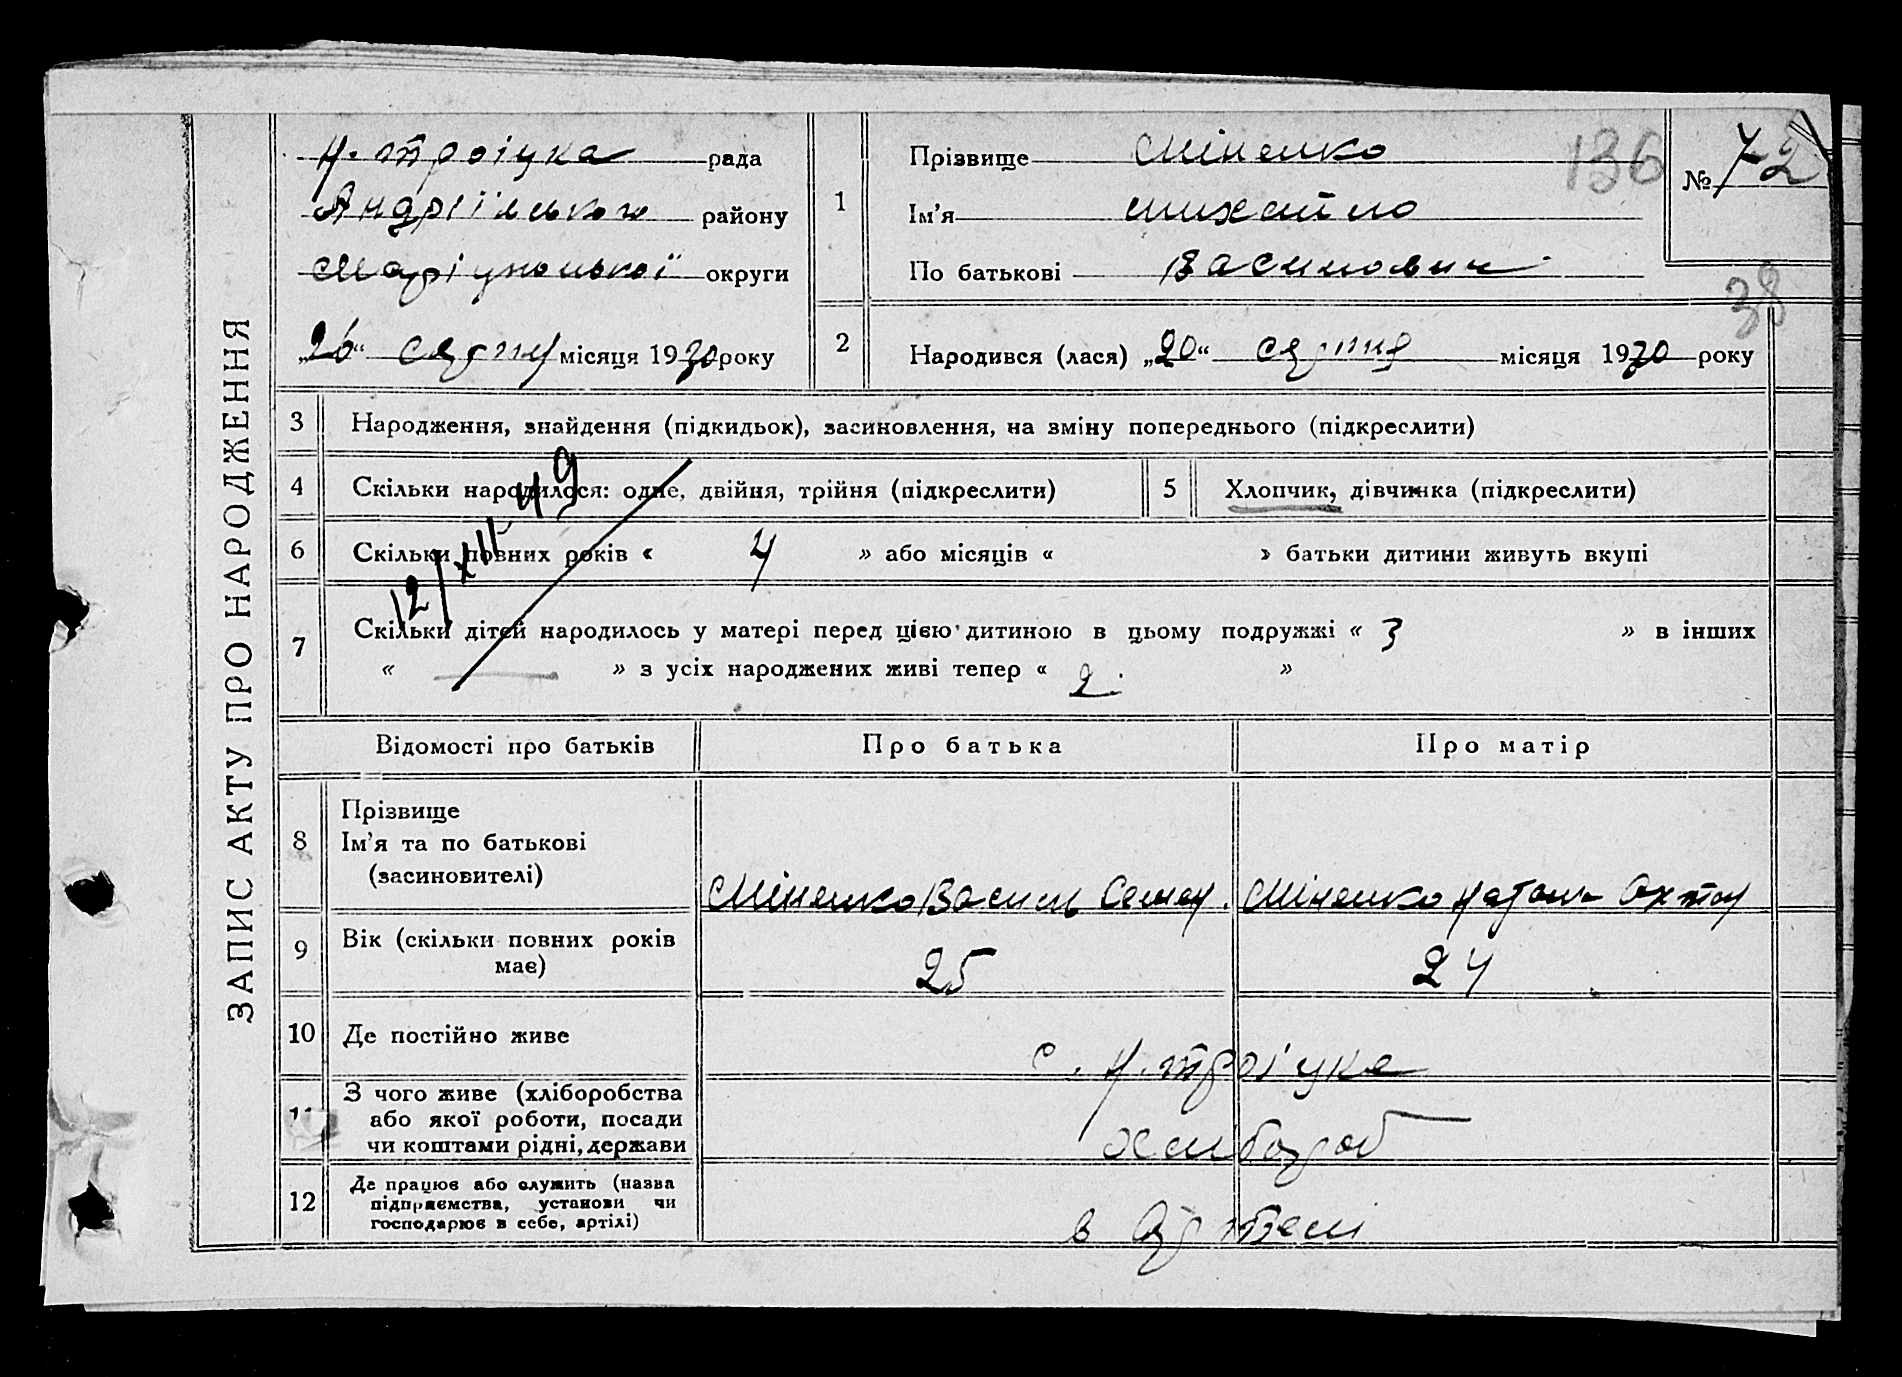 ЗАПИС АКТУ ПРО НАРОДЖЕННЯ
Н. Троіцка рада
Андріївського району
Маріупольської округи
„26“ серпня місяця 1930 року
1
Прізвище Міненко
Ім’я Михайло
По батькові Василович
136
№ 72
38
2
Народився (лася) „20“ серпня місяця 1930 року
3 Народження, знайдення (підкидьок), засиновлення, на зміну попереднього (підкреслити)
4 Скільки народилося: одне, двійня, трійня (підкреслити)
5 Хлопчик, дівчинка (підкреслити)
6 Скільки повних років « 4 » або місяців « » батьки дитини живуть вкупі
12/XII-49
7 Скільки дітей народилось у матері перед цією дитиною в цьому подружжі « 3 » в інших
« — » з усіх народжених живі тепер « 2 »
Відомості про батьків Про батька Про матір
8 Прізвище
Ім’я та по батькові
(засиновителі)
Міненко Василь Семен. Міненко Натал
9 Вік (скільки повних років
має)
25 24
10 Де постійно живе с. Н. Троіцке
11 З чого живе (хліборобства
або якої роботи, посади
чи коштами рідні, держави
хлибороб
12 Де працює або служить (назва
підприємства, установи чи
господарює в себе, артілі)
в Артелі